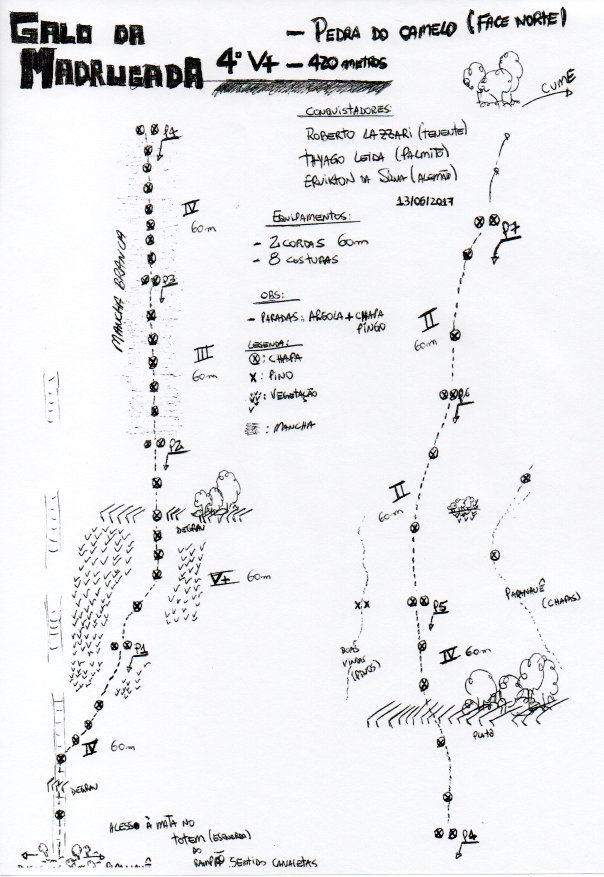 GALO DA MADRUGADA
4º V+ - 420 METROS
- PEDRA DO CAMELO (FACE NORTE)
CUME
CONQUISTADORES:
ROBERTO LAZZARI (TENENTE)
THYAGO LEIDA (PALMITO)
ERVIKTON DA SILVA (ALEMÃO)
13/06/2017
EQUIPAMENTOS:
- 2 CORDAS 60m
- 8 COSTURAS
OBS:
- PARADAS: ARGOLA + CHAPA
PINGO
LEGENDA:
: CHAPA
X : PINO
: VEGETAÇÃO
: MANCHA
P4
IV
60m
MANCHA BRANCA
P3
III
60m
P2
DEGRAU
V+ 60m
P1
IV 60m
DEGRAU
ACESSO À MATA NO
TOTEM (ESQUERDA)
DO
RAMPÃO SENTIDO CANALETAS
P7
II
60m
P6
II
60m
P5
BOAS
VINDAS
(PINOS)
PARANAUÊ
(CHAPAS)
IV 60m
PLATÔ
P4